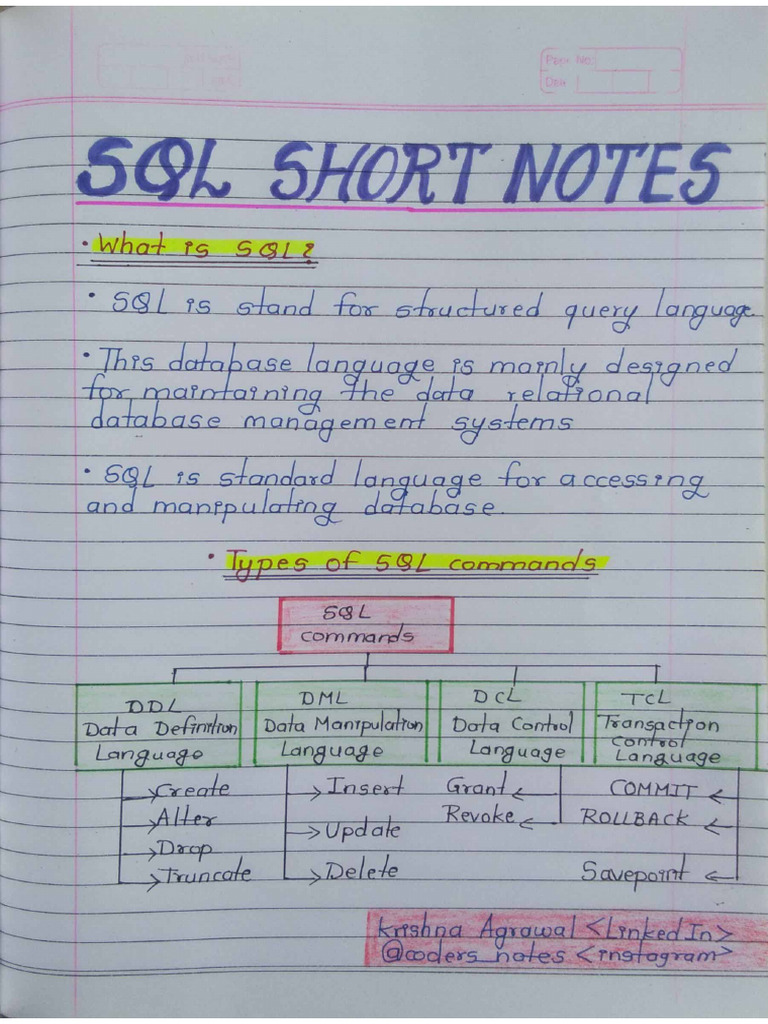 Page No:
Date
SQL SHORT NOTES
• What is SQL?
• SQL is stand for structured query language.
• This database language is mainly designed
for maintaining the data relational
database management systems
• SQL is standard language for accessing
and manipulating database.
• Types of SQL commands
SQL
commands
DDL
Data Definition
Language
DML
Data Manipulation
Language
DCL
Data Control
Language
TCL
Transaction
Control
Language
Create
Alter
Drop
Truncate
Insert
Update
Delete
Grant
Revoke
COMMIT
ROLLBACK
Savepoint
Krishna Agrawal <LinkedIn>
@coders_notes <instagram>